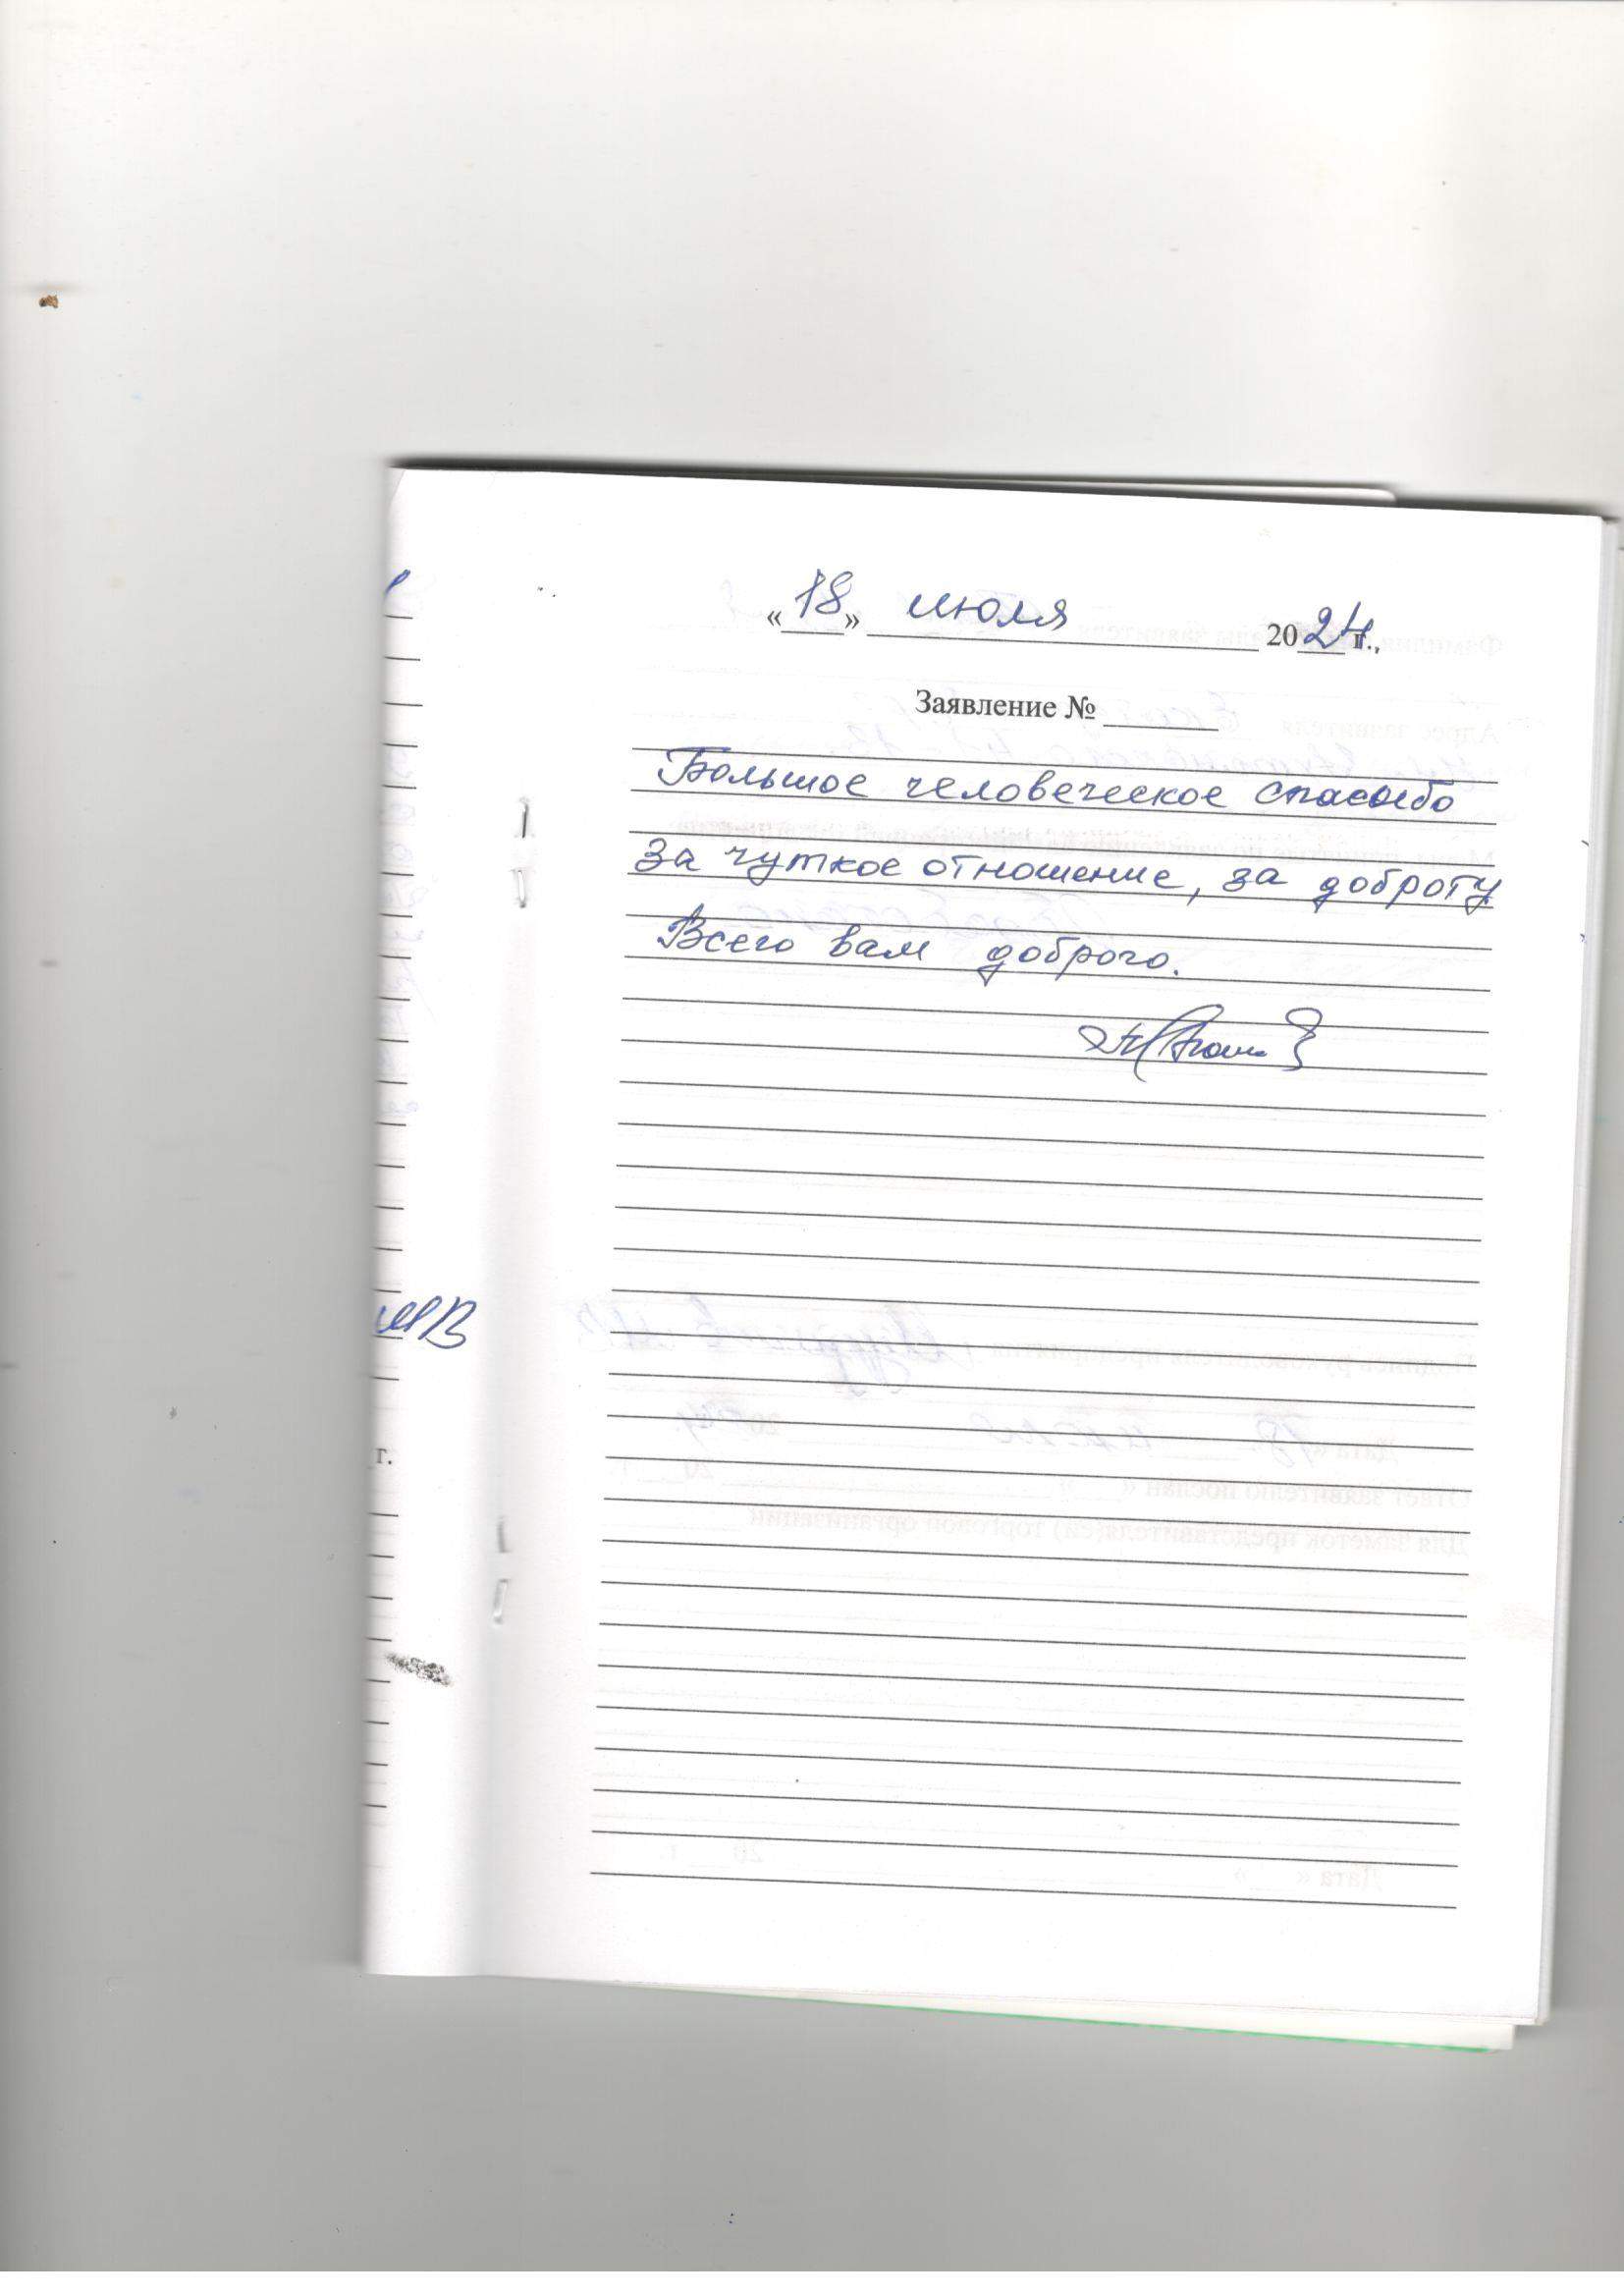 «18» июля 2024 г.,
Заявление №
Большое человеческое спасибо
за чуткое отношение, за доброту
Всего вам доброго.
г.